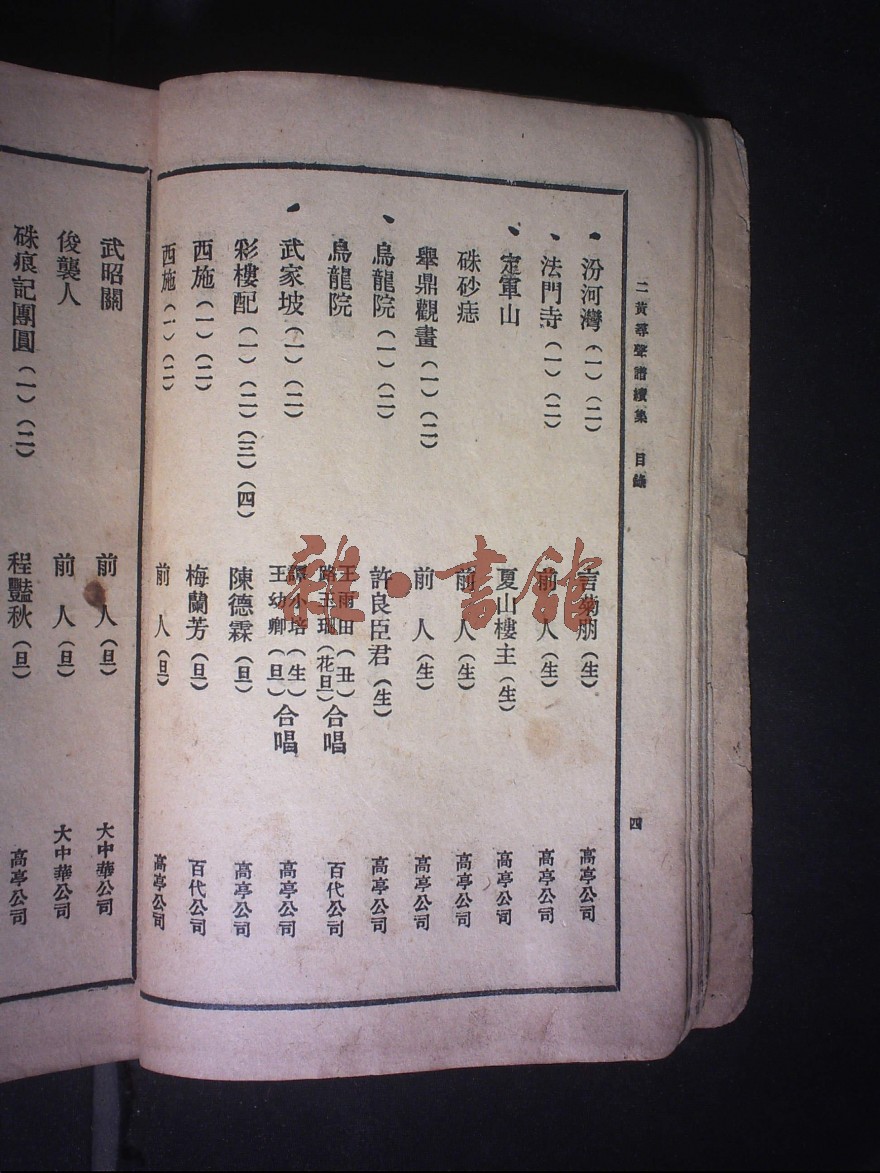 二黃尋聲譜續集 目錄 四
汾河灣(一)(二) 言菊朋(生) 高亭公司
法門寺(一)(二) 前人(生) 高亭公司
定軍山 夏山樓主(生) 高亭公司
硃砂痣 前人(生) 高亭公司
舉鼎觀畫(一)(二) 前人(生) 高亭公司
烏龍院(一)(二) 許良臣君(生) 高亭公司
烏龍院 王雨田(丑)路玉珊(花旦)合唱 百代公司
武家坡(一)(二) 譚小培(生)王幼卿(旦)合唱 高亭公司
彩樓配(一)(二)(三)(四) 陳德霖(旦) 高亭公司
西施(一)(二) 梅蘭芳(旦) 百代公司
西施(一)(二) 前人(旦) 高亭公司
武昭關 前人(旦) 大中華公司
俊襲人 前人(旦) 大中華公司
硃痕記團圓(一)(二) 程豔秋(旦) 高亭公司
雜·書館